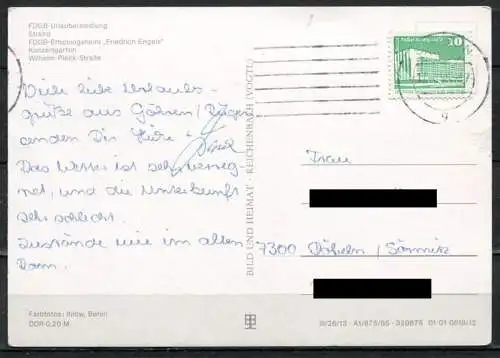 FDGB-Urlaubersiedlung
Strand
FDGB-Erholungsheim „Friedrich Engels"
Konzertgarten
Wilhelm-Pieck-Straße
Viele liebe Urlaubs-
grüße aus Göhren / Rügen
senden Dir
Das Wetter ist sehr vereg
net, und die Unterkunft
sehr schlecht.
Zustände wie im alten
Rom.
BILD UND HEIMAT · REICHENBACH (VOGTL)
10
DDR
Frau
7300 Döbeln /
Farbfotos: Ihlow, Berlin
DDR 0,20 M
III/26/13 · A1/875/85 · 320875 01 01 0619/12